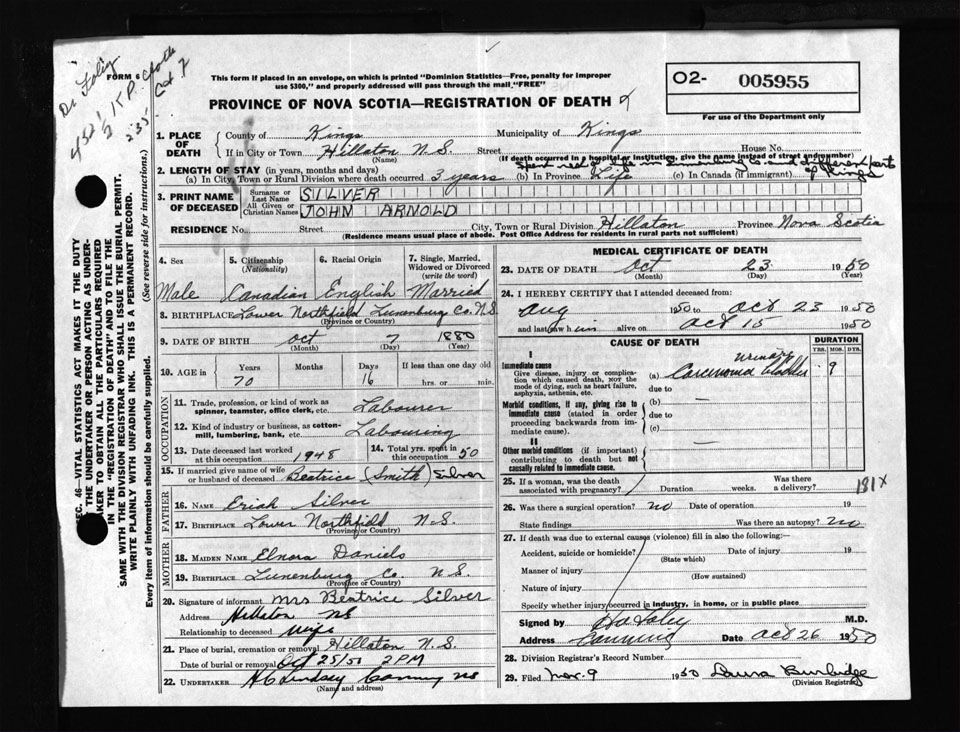 Dr Foley
452 1/2 15 P.
235
Oct 7
FORM 6
This form if placed in an envelope, on which is printed "Dominion Statistics—Free, penalty for improper
use $300," and properly addressed will pass through the mail "FREE"
O2- 005955
For use of the Department only
PROVINCE OF NOVA SCOTIA—REGISTRATION OF DEATH
1. PLACE OF DEATH County of Kings Municipality of Kings
If in City or Town Hillaton N.S. Street House No.
(Name) (If death occurred in a hospital or institution, give the name instead of street and number)
2. LENGTH OF STAY (in years, months and days) Spent rest of life in Lunenburg Co. and different parts of Kings
(a) In City, Town or Rural Division where death occurred 3 years (b) In Province Life (c) In Canada (if immigrant)
3. PRINT NAME OF DECEASED Surname or Last Name SILVER
All Given or Christian Names JOHN ARNOLD
RESIDENCE No. Street City, Town or Rural Division Hillaton Province Nova Scotia
(Residence means usual place of abode. Post Office Address for residents in rural parts not sufficient)
4. Sex 5. Citizenship (Nationality) 6. Racial Origin 7. Single, Married, Widowed or Divorced (write the word)
Male Canadian English Married
8. BIRTHPLACE Lower Northfield Lunenburg Co. N.S.
(Province or Country)
9. DATE OF BIRTH Oct 7 1880
(Month) (Day) (Year)
10. AGE in Years Months Days If less than one day old
70 16 hrs. or min.
OCCUPATION
11. Trade, profession, or kind of work as spinner, teamster, office clerk, etc. Labourer
12. Kind of industry or business, as cotton-mill, lumbering, bank, etc. Labouring
13. Date deceased last worked at this occupation 1948 14. Total yrs. spent in this occupation 50
15. If married give name of wife or husband of deceased Beatrice (Smith) Silver
FATHER
16. Name Eriah Silver
17. Birthplace Lower Northfield N.S.
(Province or Country)
MOTHER
18. Maiden Name Elnora Daniels
19. Birthplace Lunenburg Co. N.S.
(Province or Country)
20. Signature of informant Mrs Beatrice Silver
Address Hillaton NS
Relationship to deceased Wife
21. Place of burial, cremation or removal Hillaton N.S.
Date of burial or removal Oct 25/50 2 PM
22. Undertaker H C Lindsay Canning NS
(Name and address)
MEDICAL CERTIFICATE OF DEATH
23. DATE OF DEATH Oct 23 1950
(Month) (Day) (Year)
24. I HEREBY CERTIFY that I attended deceased from:
Aug 1950 to Oct 23 1950
and last saw him alive on Oct 15 1950
CAUSE OF DEATH DURATION
YRS. MOS. DYS.
I
Immediate cause
Give disease, injury or complication which caused death, NOT the mode of dying, such as heart failure, asphyxia, asthenia, etc.
(a) Carcinoma urinary bladder 9
due to
Morbid conditions, if any, giving rise to immediate cause (stated in order proceeding backwards from immediate cause).
(b) —
due to
(c)
II
Other morbid conditions (if important) contributing to death but not causally related to immediate cause. —
25. If a woman, was the death associated with pregnancy? Duration weeks. Was there a delivery?
181 X
26. Was there a surgical operation? no Date of operation 19
State findings Was there an autopsy? no
27. If death was due to external causes (violence) fill in also the following:
Accident, suicide or homicide? Date of injury 19
(State which)
Manner of injury
(How sustained)
Nature of injury
Specify whether injury occurred in industry, in home, or in public place
Signed by Foley M.D.
Address Canning Date Oct 26 1950
28. Division Registrar's Record Number
29. Filed Nov. 9 1950 Laura Burbidge
(Division Registrar)
SEC. 46—VITAL STATISTICS ACT MAKES IT THE DUTY
OF THE UNDERTAKER OR PERSON ACTING AS UNDERTAKER
TO OBTAIN ALL THE PARTICULARS REQUIRED
IN THE "REGISTRATION OF DEATH" AND TO FILE THE
SAME WITH THE DIVISION REGISTRAR WHO SHALL ISSUE THE BURIAL PERMIT.
WRITE PLAINLY WITH UNFADING INK. THIS IS A PERMANENT RECORD.
Every item of information should be carefully supplied. (See reverse side for instructions.)